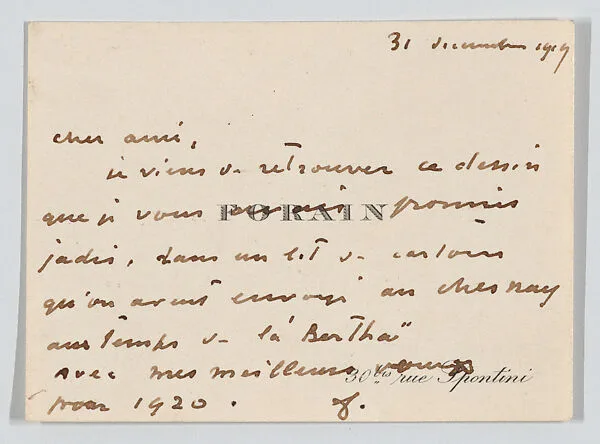 31 decembre 1919
cher ami,
je viens de retrouver ce dessin
que je vous avais promis
FORAIN
jadis, dans un lot de cartons
qu'on avait envoyé au chesnay
au temps de la "Bertha"
avec mes meilleurs vœux
30 bis rue Spontini
pour 1920. f.